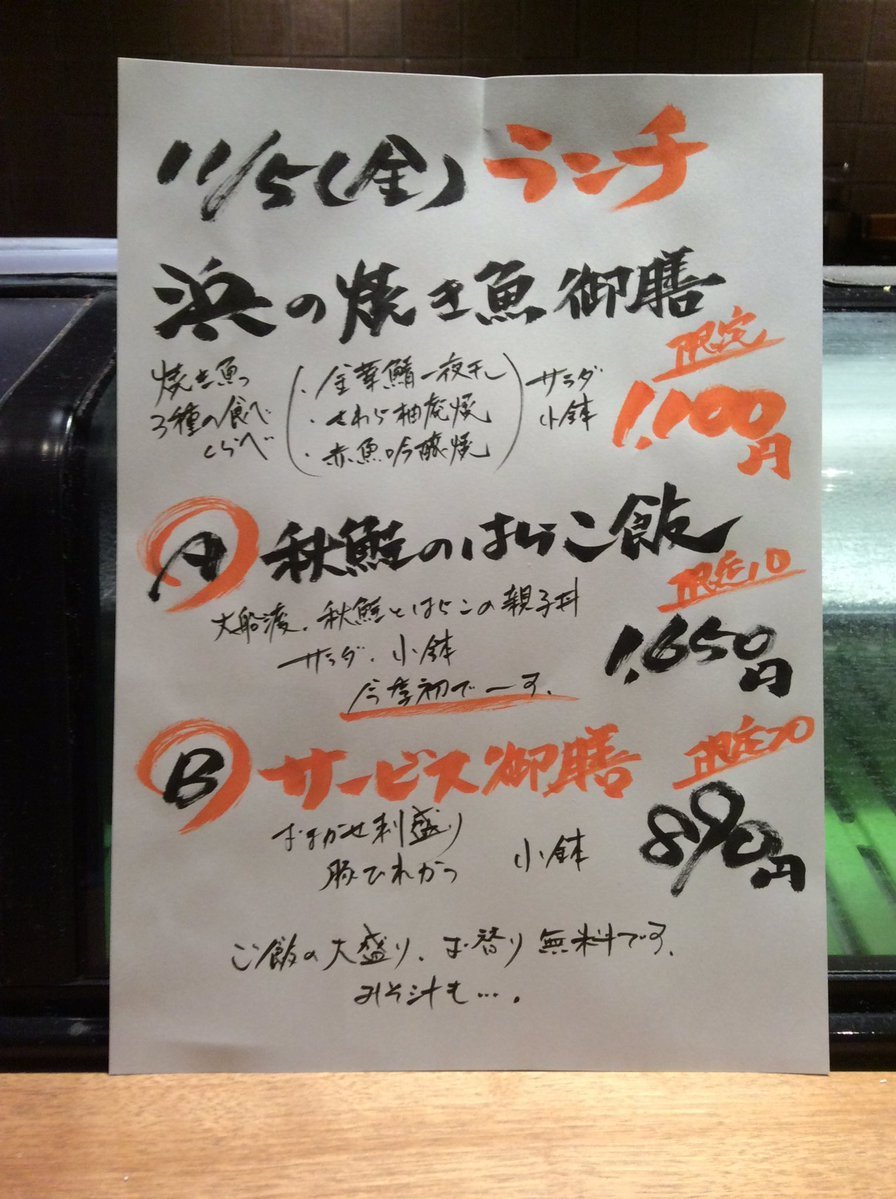 11/5(金) ランチ
浜の焼き魚御膳
限定
1,100円
焼き魚
3種の食べ
くらべ
・金華鯖一夜干し
・さわら柚庵焼
・赤魚吟醸焼
サラダ
小鉢
A 秋鮭のはらこ飯
限定10
1,650円
大船渡、秋鮭とはらこの親子丼
サラダ、小鉢
今季初でーす、
B サービス御膳
限定20
890円
おまかせ刺盛り
豚ひれかつ 小鉢
ご飯の大盛り、お替り無料です、
みそ汁も…。